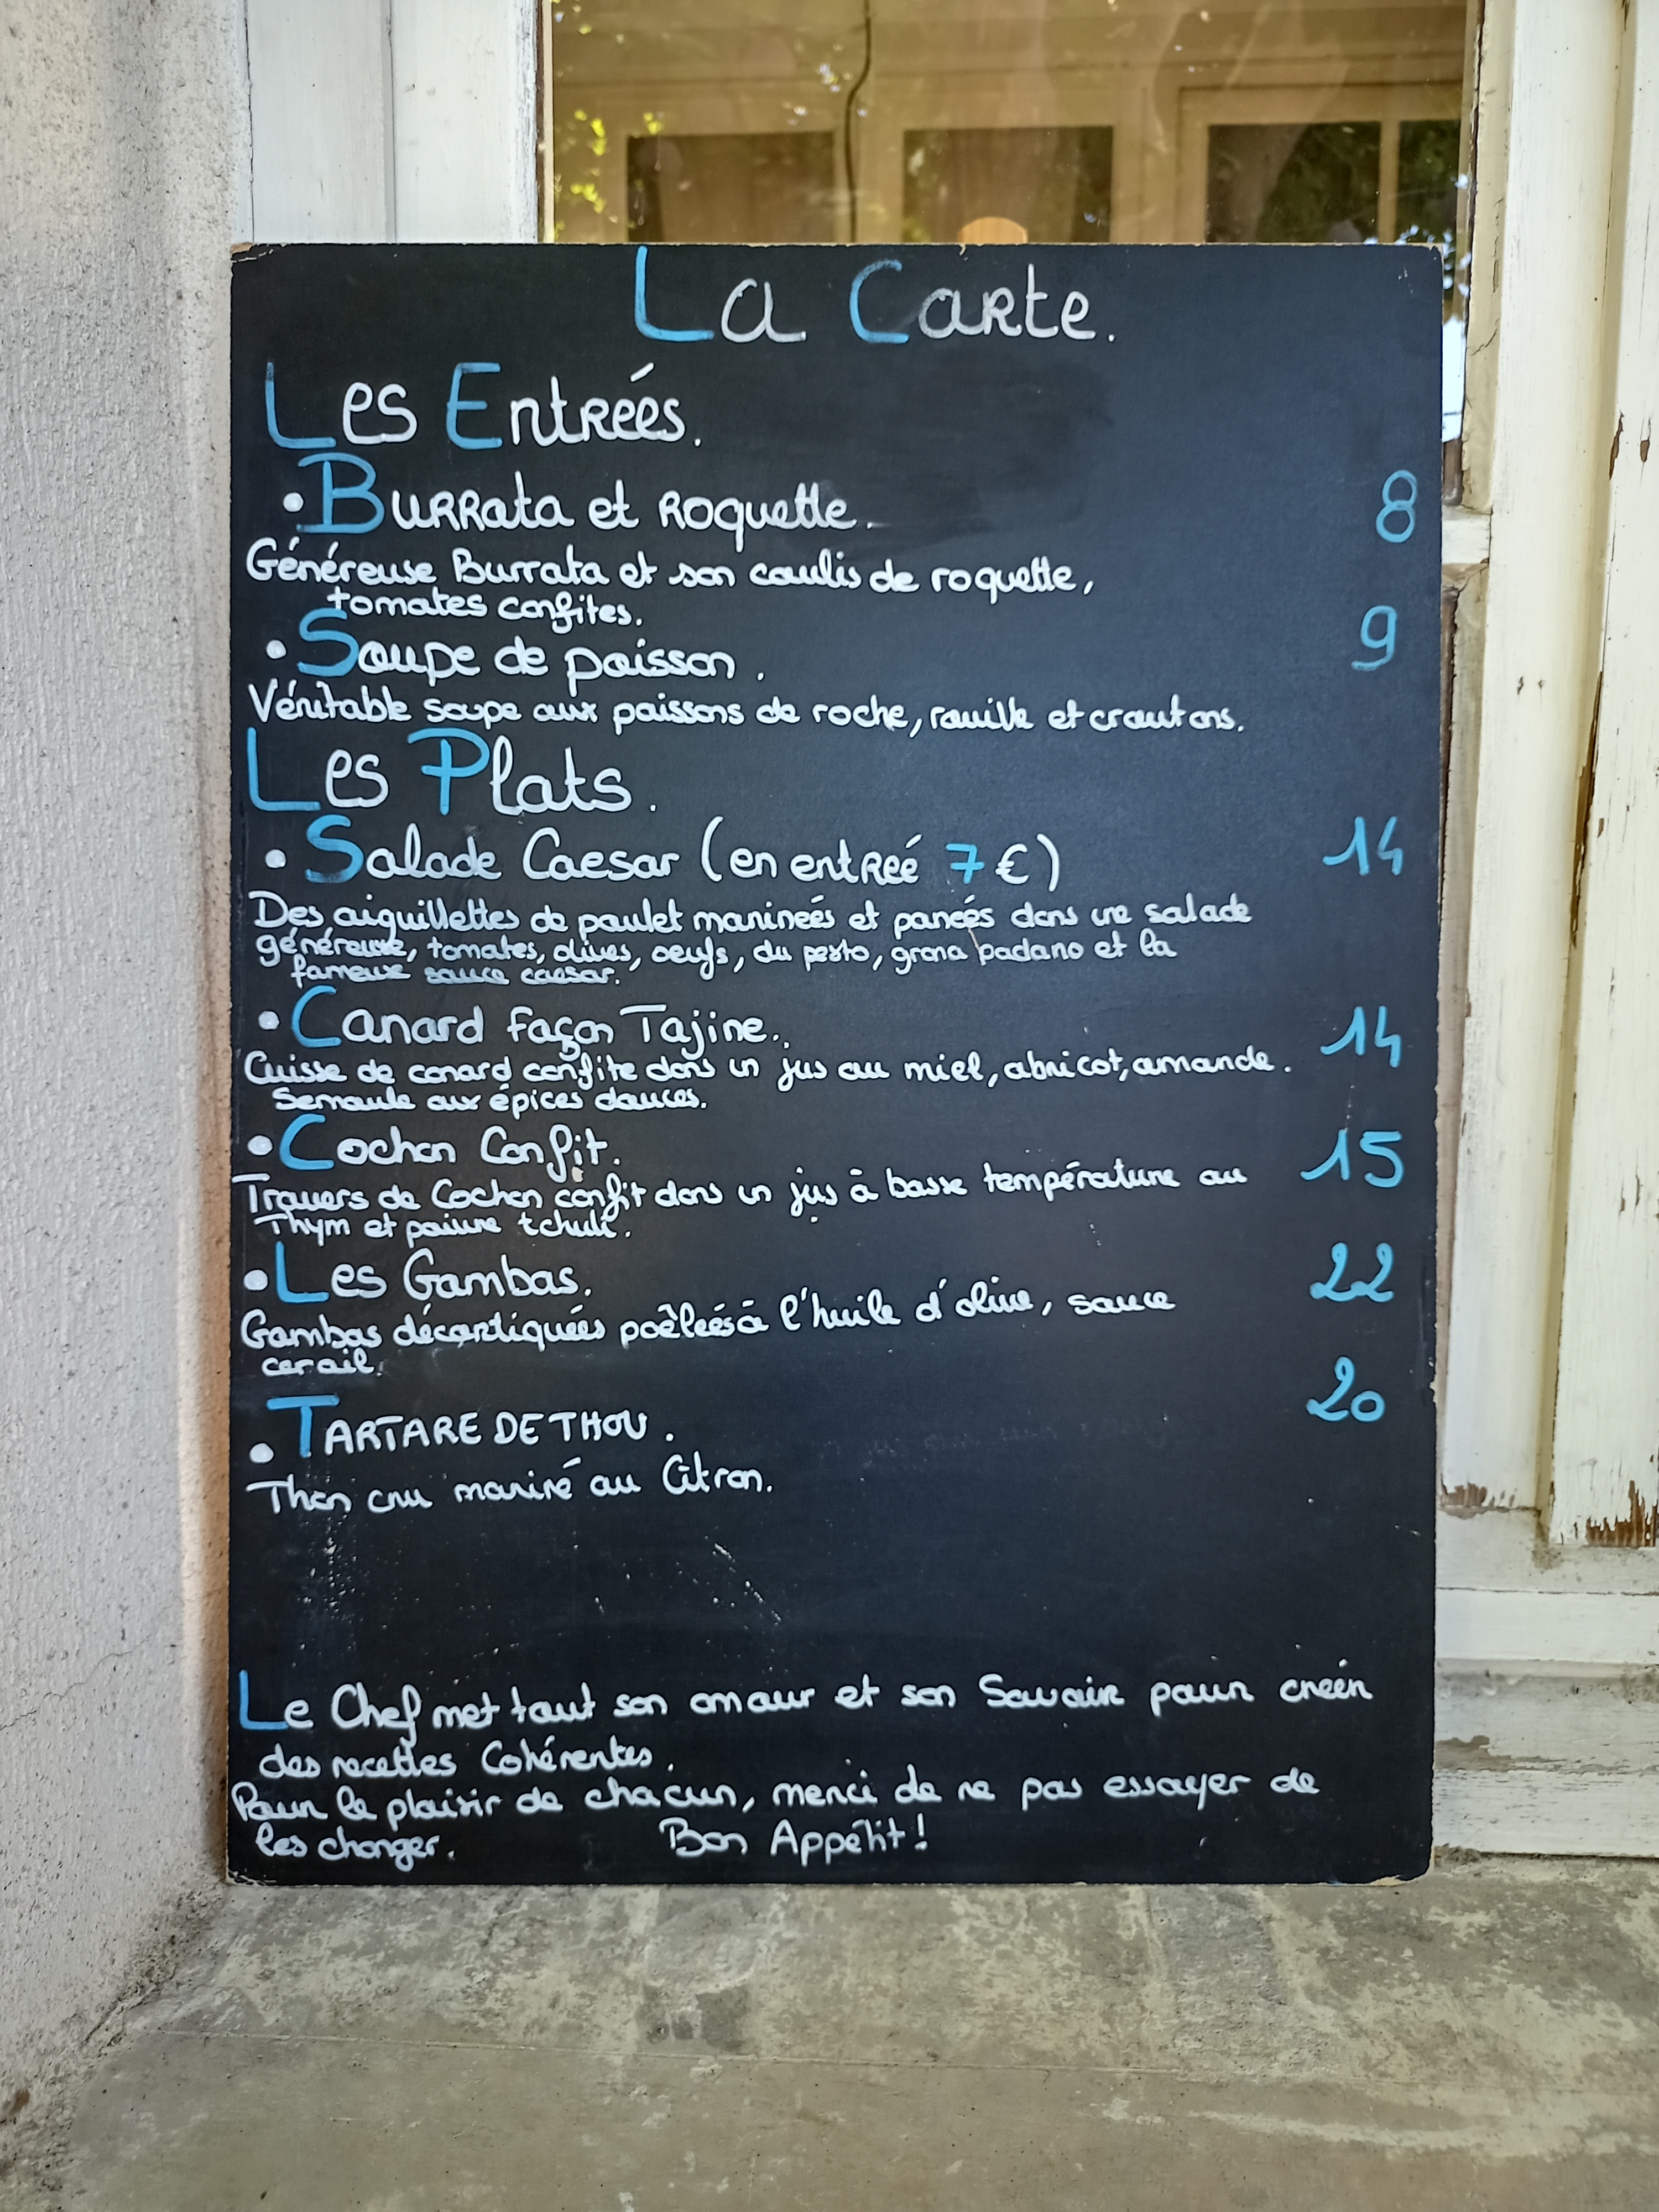 La Carte.
Les Entreés.
• Burrata et Roquette. 8
Généreuse Burrata et son coulis de roquette,
tomates confites.
• Soupe de poisson. 9
Véritable soupe aux poissons de roche, rouille et croutons.
Les Plats.
• Salade Caesar (en entreé 7€) 14
Des aiguillettes de poulet marineés et paneés dans une salade
généreuse, tomates, olives, oeufs, du pesto, grana padano et la
fameuse sauce caesar.
• Canard façon Tajine. 14
Cuisse de canard confite dans un jus au miel, abricot, amande.
Semoule aux épices douces.
• Cochon Confit. 15
Travers de Cochon confit dans un jus à basse température au
Thym et poivre tchuli.
• Les Gambas. 22
Gambas décortiqueés poêleés à l'huile d'olive, sauce
corail.
• TARTARE DE THON. 20
Thon cru mariné au Citron.
Le Chef met tout son amour et son Savoir pour creér
des recettes Cohérentes.
Pour le plaisir de chacun, merci de ne pas essayer de
les changer. Bon Appétit!